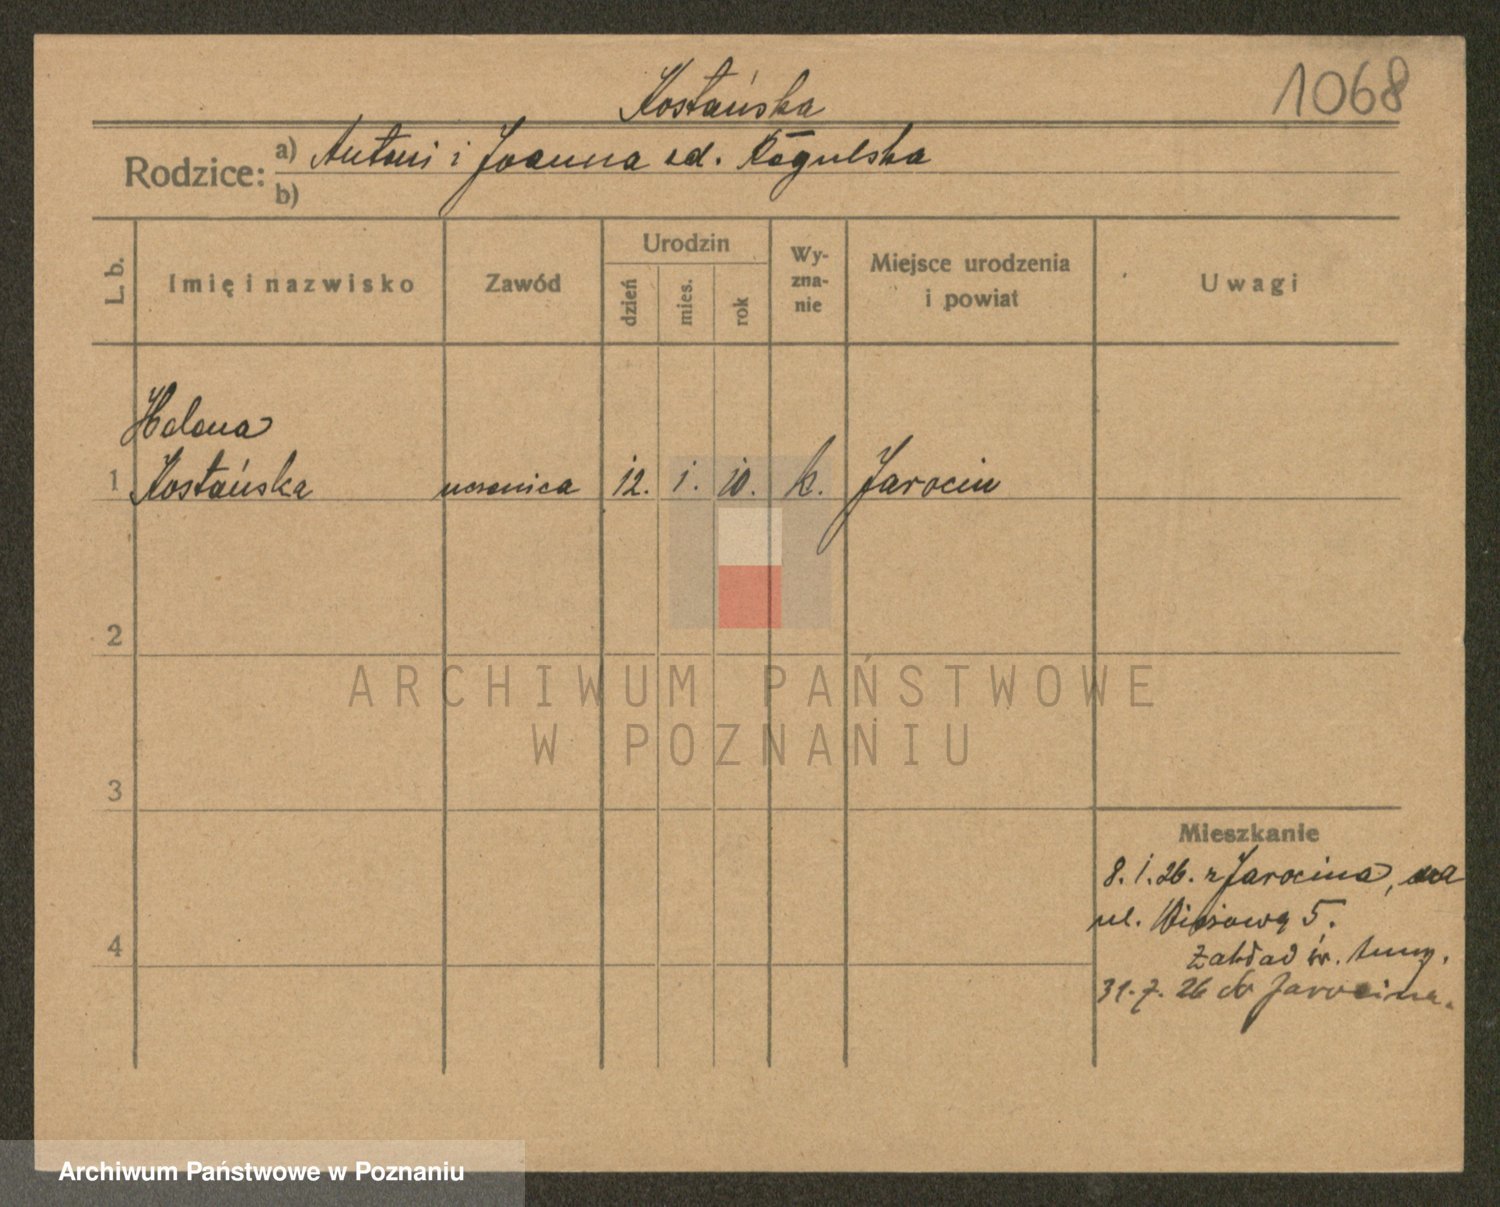 1068
Kostańska
Rodzice: a) Antoni i Joanna zd. Rogulska
b)
L. b.
Imię i nazwisko
Zawód
Urodzin
dzień
mies.
rok
Wy-
zna-
nie
Miejsce urodzenia
i powiat
Uwagi
Helena
1 Kostańska uczenica 12. 1. 10. k. Jarocin
2
3
4
Mieszkanie
8. 1. 26. z Jarocina, na
ul. 5.
Zakład św.
31. 7. 26 do Jarocina.
ARCHIWUM PAŃSTWOWE
W POZNANIU
Archiwum Państwowe w Poznaniu